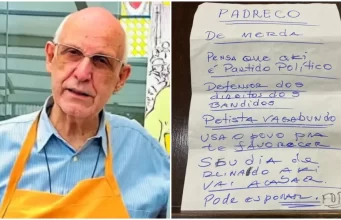 PADRECO
DE MERDA
PENSA QUE AKI
É PARTIDO POLÍTICO
DEFENSOR DOS
DIREITOS DOS
BANDIDOS
PETISTA VAGABUNDO
USA O POVO PRA
TE FAVORECER
SEU DIA DE
REINADO AKI
VAI ACABAR
PODE ESPERAR.